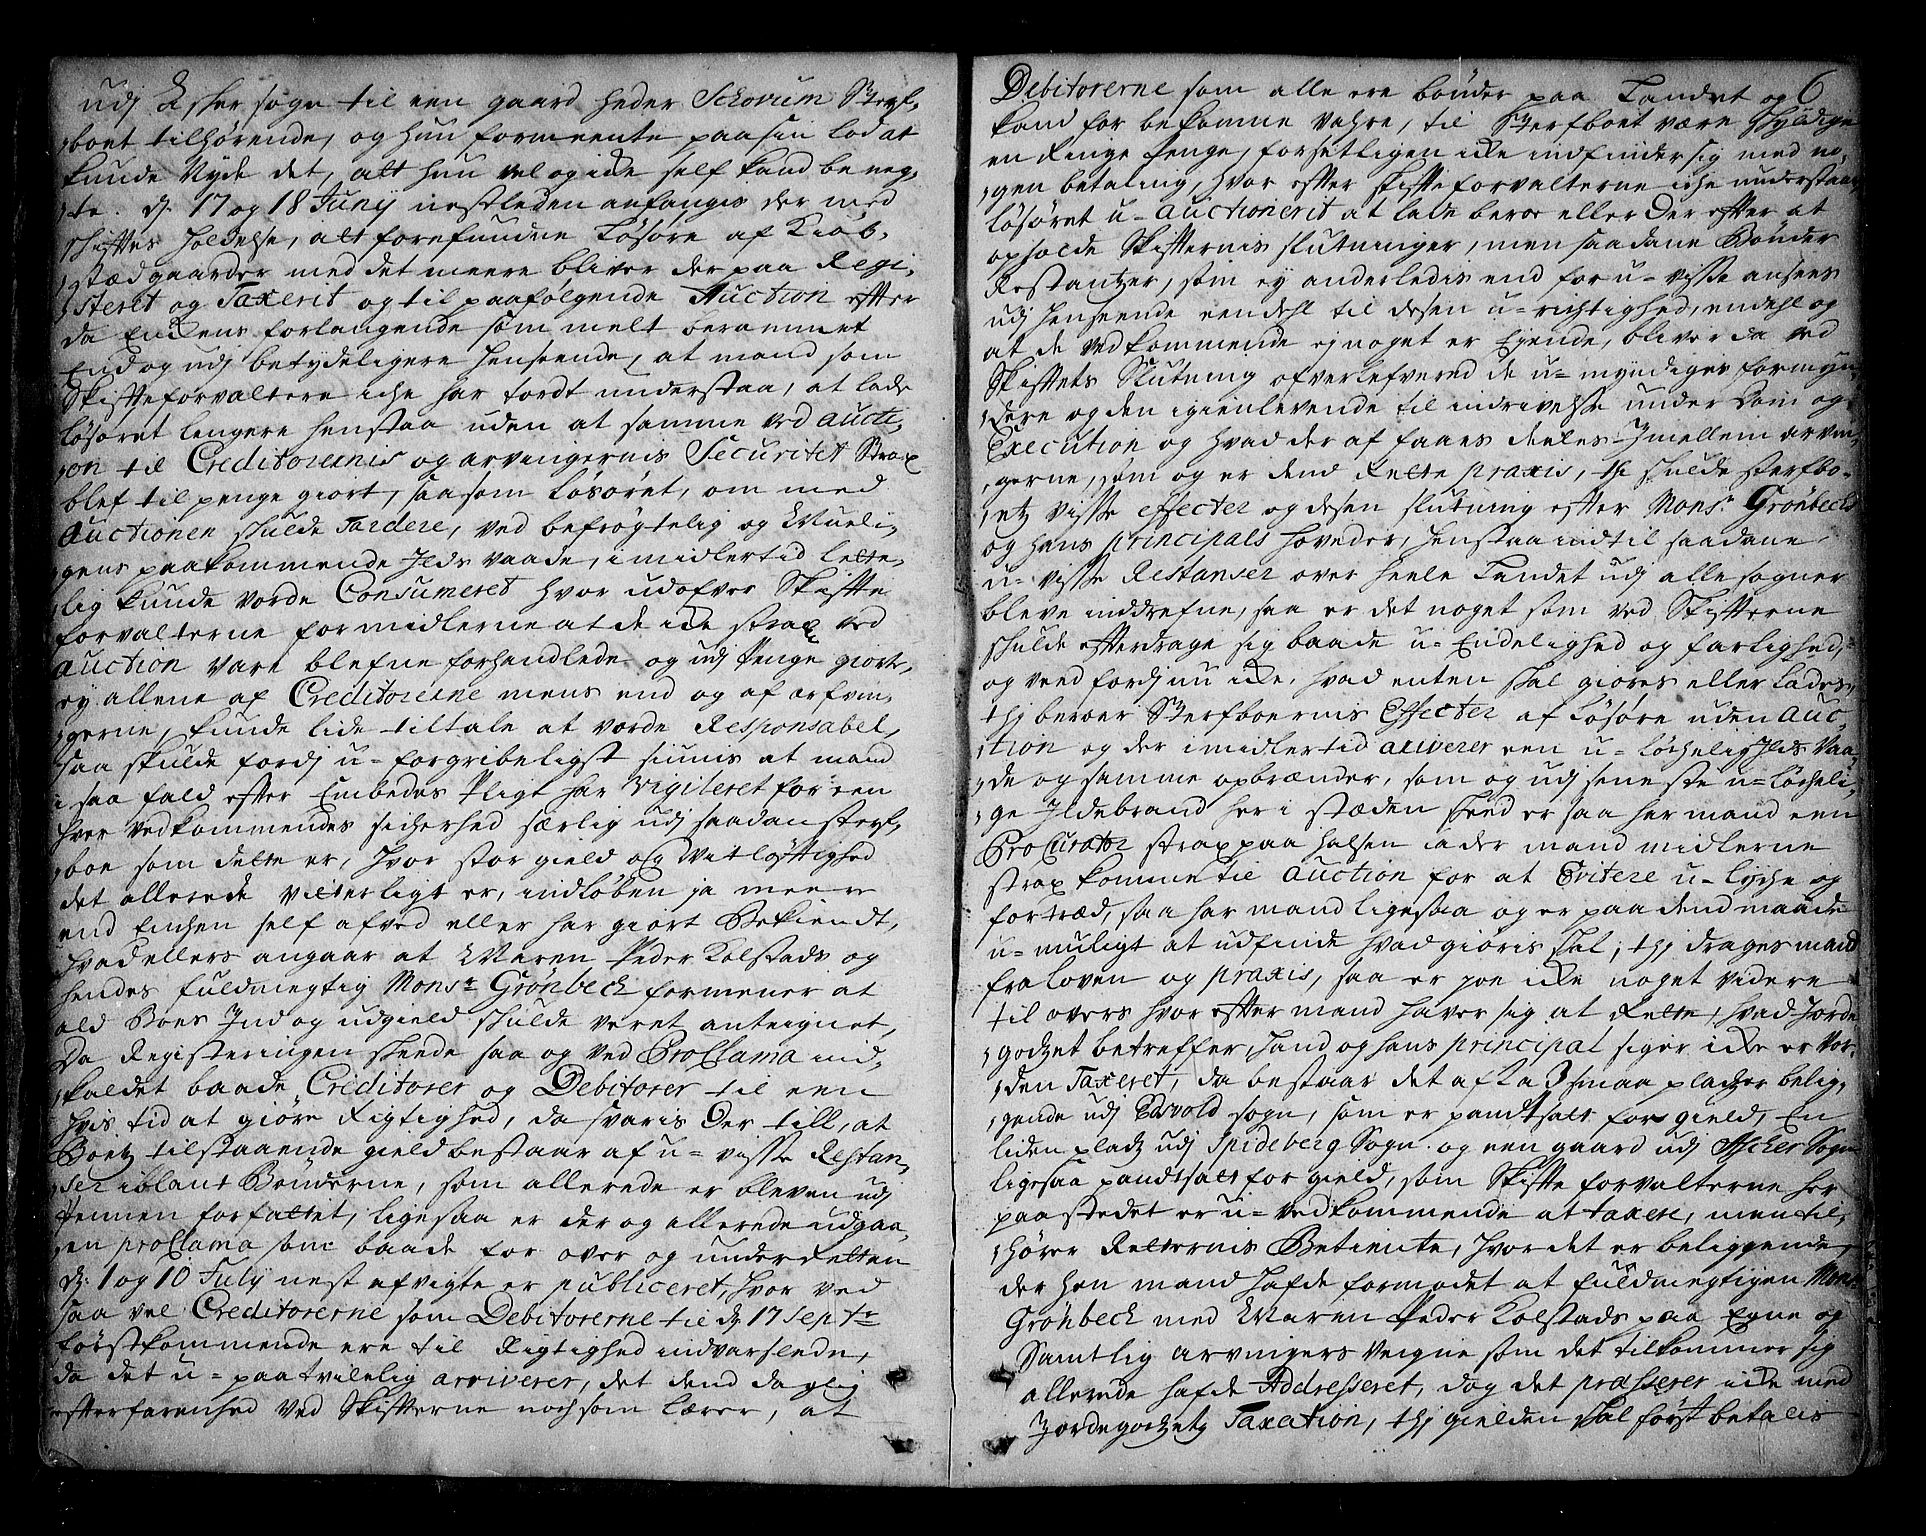 udj Asker sogn til een gaard heder Schovum Sterf-
boet tilhørende, og hun formeente paa sin lod at
kunde Nyde det, alt hun vel og icke self kand beneg-
te. d. 17 og 18 Junij nestleden anfangis der med
skiftes holdelse, alt forefundne Løsøre af Kiøb-
stædgaarder med det meere bliver der paa Regi-
steret og Taxerit og til paafølgende Auction efter
da Enckens forlangende som melt berammet
End og udj betydeligere henseende, at mand som
Skifteforvaltere iche har tordt understaa, at lade
løsøret lengere henstaa uden at samme ved Aucti-
on til Creditorernis og arvingernis Securitet Strax
blef til penge giort, saasom Løsøret, om med
Auctionen skulde Tardere, ved befrøgtelig og Mueli-
gens paakommende Ilds vaade, imidlertid lette-
lig kunde vorde Consumeret hvor udofver Skifte
forvalterne for midlerne at de icke strax ved
Auction vare blefne forhandlede og udj Penge giort,
ey allene af Creditorerne mens end og af arfvin-
gerne, kunde lide tiltale at vorde Responsabel,
saa skulde fordj u-forgribeligst siunis at mand
i saa fald efter Embedes Pligt har vigileret for een
hver vedkommendes sickerhed særlig udj saadan sterf-
boe som dette er, hvor stor gield og Vitløftighed
det allerede vitterligt er, indløben ja meere
end Enchen self afved eller har giort Bekiendt,
hvad ellers angaar at Maren Peder Kolstads og
hendes fuldmegtig Monsr Grønbech formener at
ald Boens Ind og udgield skulde veret anteignet,
Da Registeringen skeede saa og ved Proclama ind-
kaldet baade Creditorer og Debitorer til een
hvis tid at giøre Rigtighed, da svaris Der till, at
Boetz tilstaaende gield bestaar af u-visse Restan-
ser iblant Bønderne, som allerede er bleven udj
Pennen forfattet, ligesaa er der og allerede udgaa-
en proclama som baade for over og underretten
d: 1 og 10 July nest afvigte er publiceret, hvor ved
saa vel Creditorerne som Debitorerne til d 17 Septr
førstkommende ere til Rigtighed indvarslede,
da det u-paatvilelig arriverer, det dend daglig
efterfarenhed ved Skifterne nochsom lærer, at
6
Debitorerne som alle ere bønder paa Landet og
kand for bekomne vahre, til Sterfboet være skyldige
en Ringe penge, forsetligen icke indfinder sig med no-
gen betaling, hvor efter skifteforvalterne iche understaar
løsøret u-auctionerit at lade beroe eller Der efter at
opholde Skifternis slutninger, men saadane Bønder
Restantzer, som ey anderledis end for u-visse ansees
udj henseende eendehl til desen u-richtighed, endehl og
at de vedkommende ej noget er Eyende, bliver da ved
Skiftets Slutning ofverlefvered de u-myndiges formyn-
dere og den igienlevende til indrivelse under Dom og
Execution og hvad der af faaes deeles Imellem arvin-
gerne, som og er dend Rette praxis, thi skulde sterfbo-
etz visse effecter og desen slutning efter Monsr Grønbechs
og hans principals hoveder, henstaa indtil saadane
u-visse Restanser over heele Landet udj alle sogner
bleve inddrefne, saa er det noget som ved Skifterne
skulde efterdrage sig baade u-Endelighed og farlighed,
og veed fordj nu icke, hvad enten skal giøres eller lades,
thj beroer Sterfboernis Effecter af løsøre uden Auc-
tion og der imidlertid ariverer een u-løchelig Ilds Vaa-
de og samme opbrænder, som og udj seneste u-løcheli-
ge Ildebrand her i stæden skeed er saa har mand een
Procurator strax paa halsen lader mand midlerne
strax komme til Auction for at Evitere u-lyche og
fortræd, saa har mand ligesaa og er paa dend maade
u-muligt at udfinde hvad giøris skal; thj drages mand
fra loven og praxis, saa er joe icke noget videre
til overs hvor efter mand haver sig at Rette, hvad Jorde
godzet betreffer, hand og hans principal siger icke er vor-
den Taxeret, da bestaar det af 2 a 3 smaa pladzer belig-
gende udj Edsvold sogn, som er pandtsatt for gield, En
liden pladz udj Spideberg Sogn og een gaard udj Ascher Sogn
ligesaa pandtsatt for gield, som Skifte forvalterne her
paa stedet er u-vedkommende at taxere, men til-
hører Retternis Betiente, hvor det er beliggende,
der hen mand hafde formodet at fuldmegtigen Monsr
Grønbech med Maren Peder Kolstads paa Egne og
Samtlig arvingers Veigne som det tilkommer sig
allerede hafde Addresseret, dog det præsserer icke med
Jordegodzetz Taxation, thj gielden skal først betalis